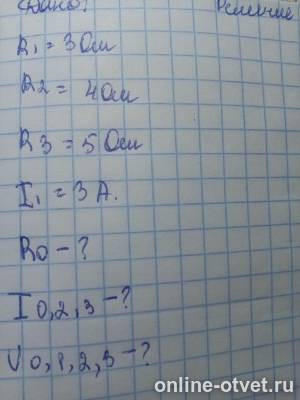 Дано: Решение
R₁ = 3 Ом
R₂ = 4 Ом
R₃ = 5 Ом
I₁ = 3 А.
R₀ - ?
I₀,₂,₃ - ?
U₀,₁,₂,₃ - ?
online-otvet.ru